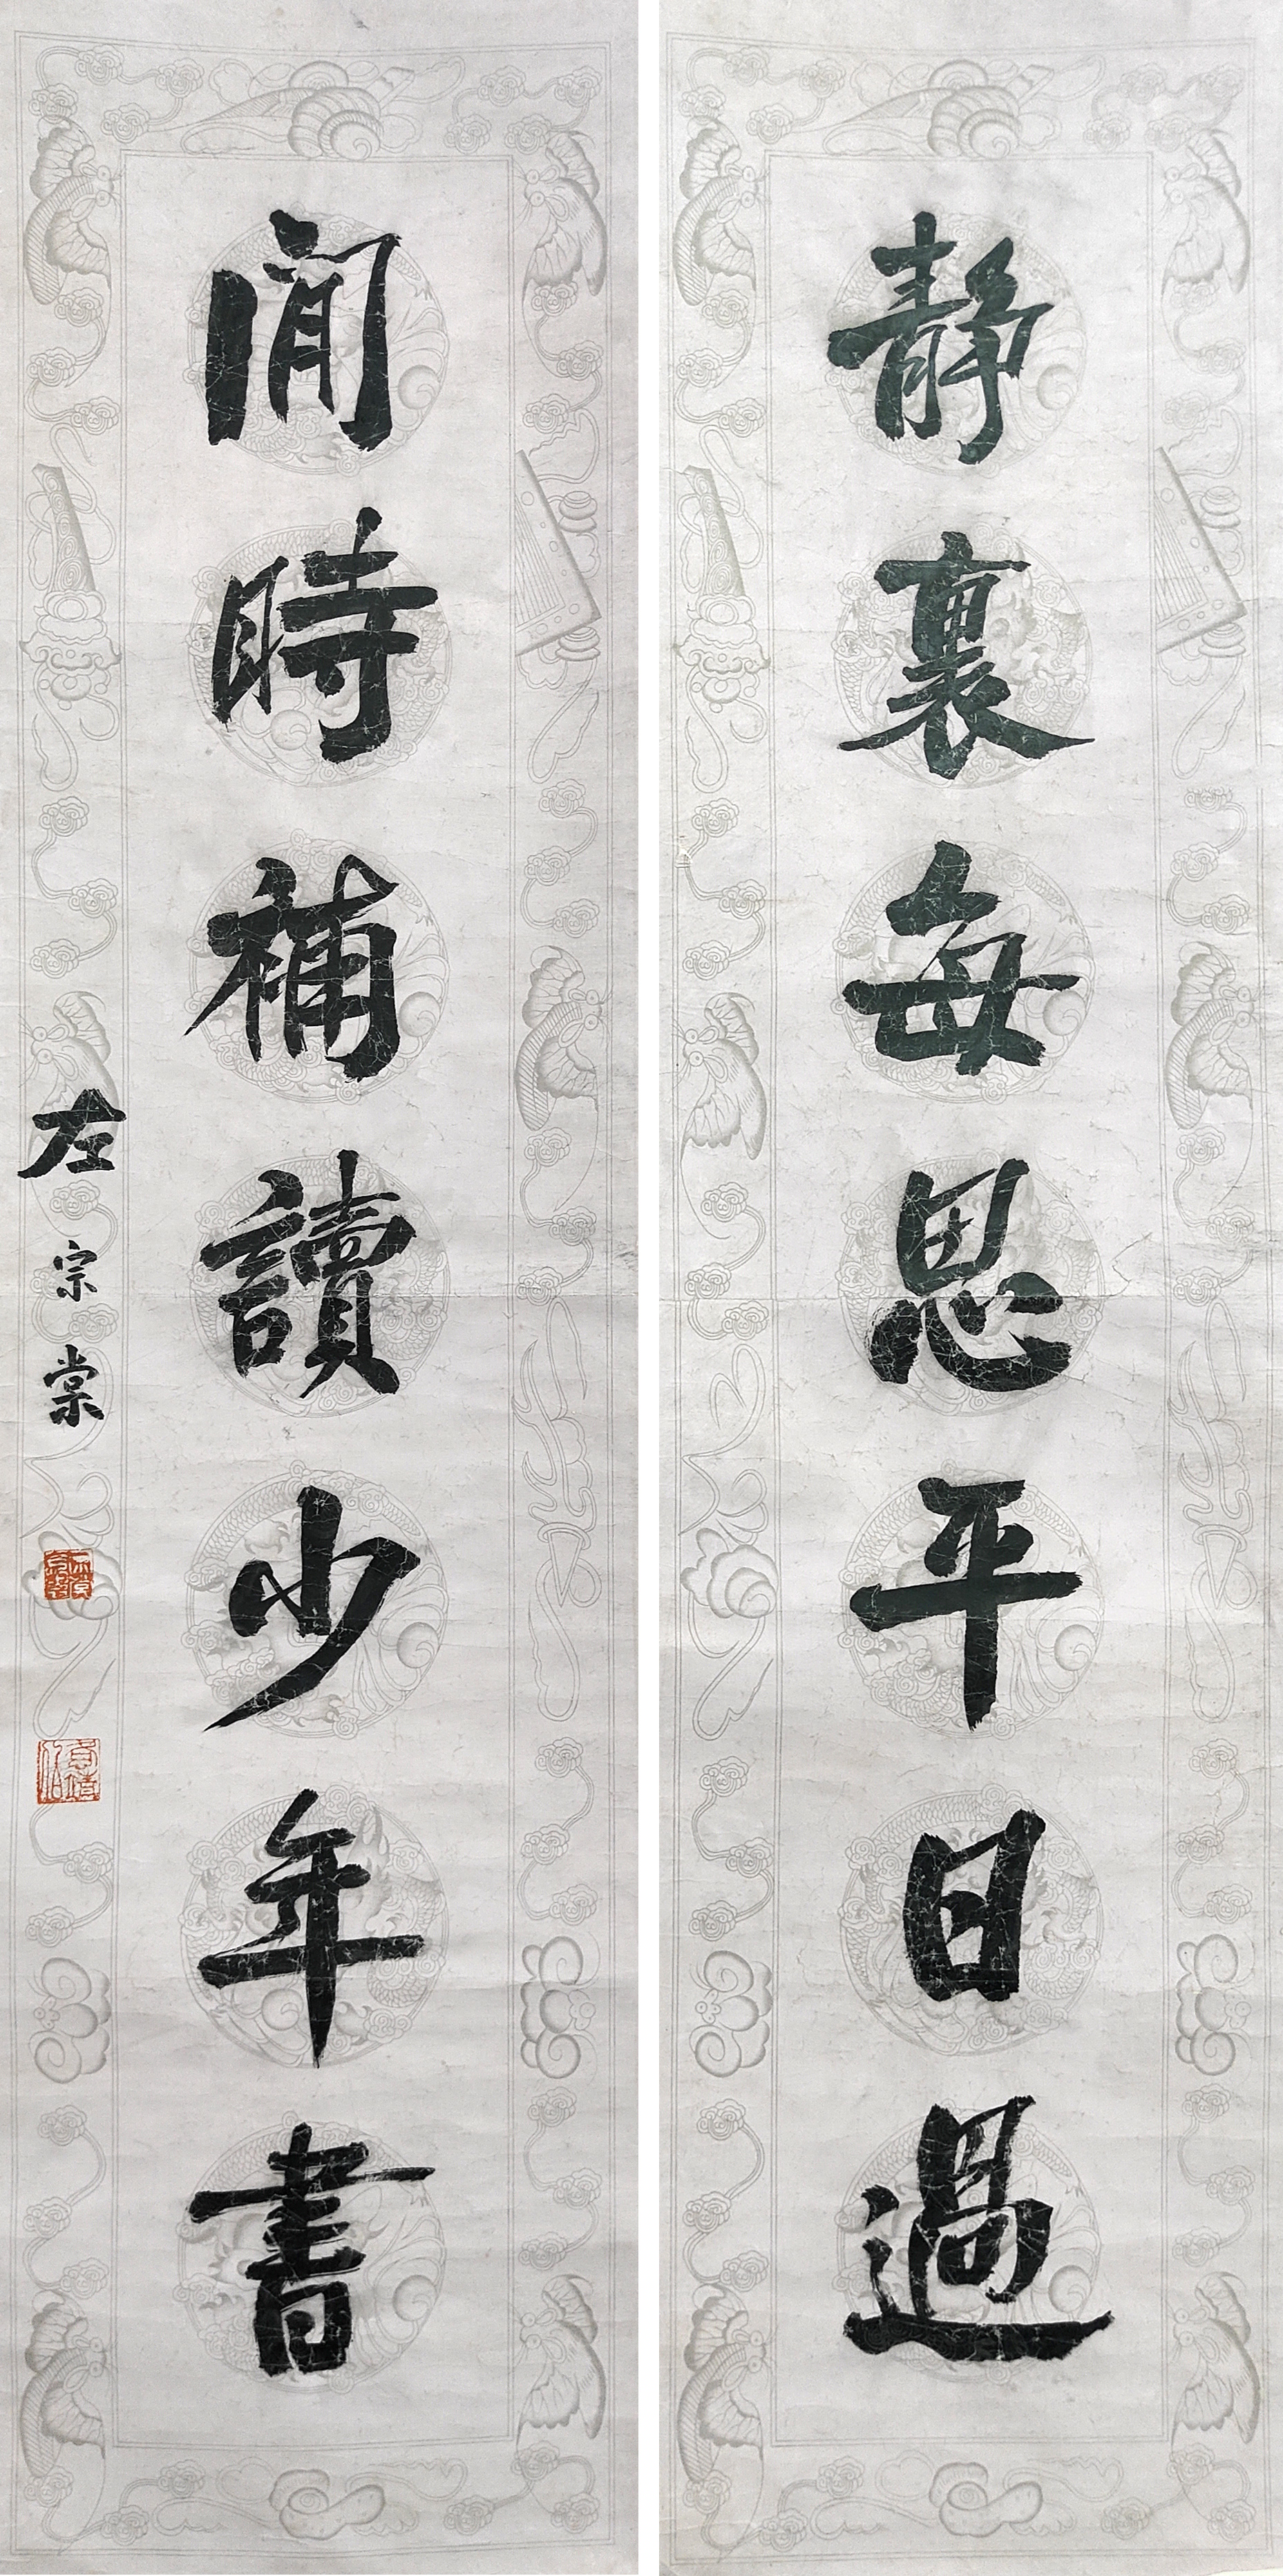 靜裏每思平日過
閒時補讀少年書
左宗棠